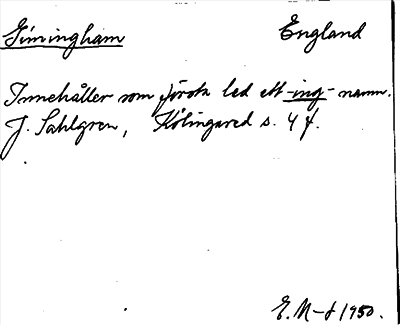 Gimingham England
Innehåller som första led ett -ing- namn.
J. Sahlgren, Kölingared s. 4 f.
E. M-d 1950.